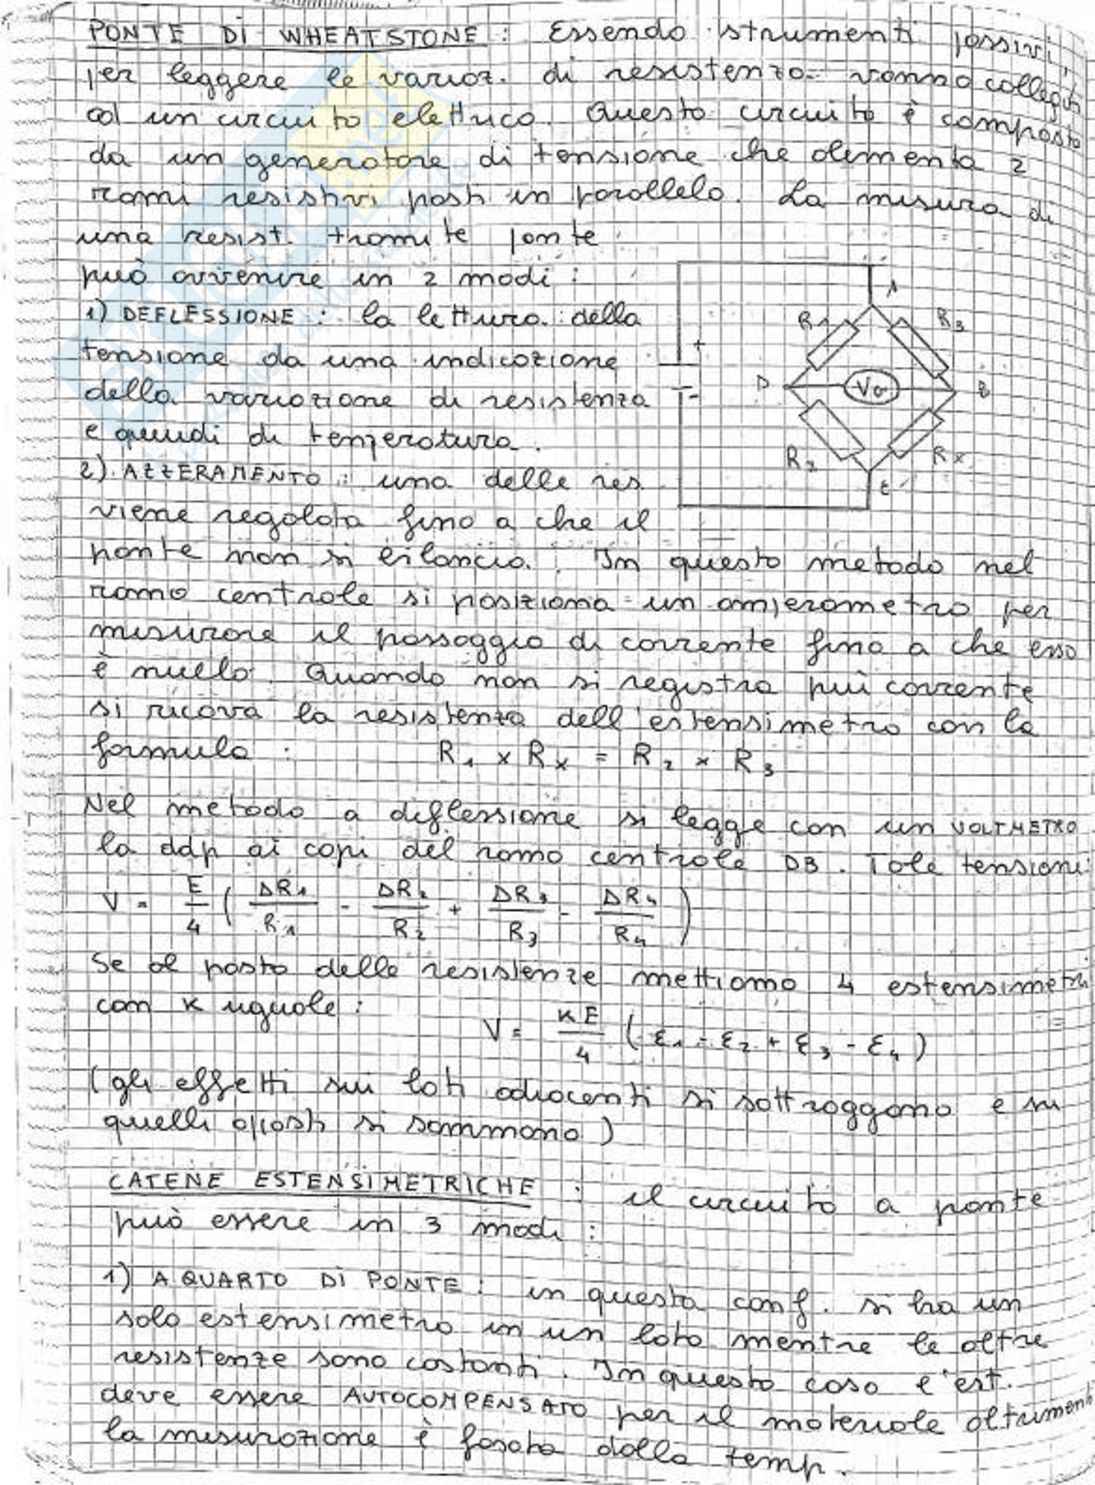 PONTE DI WHEATSTONE : Essendo strumenti passivi,
per leggere le variaz. di resistenza vanno collegati
ad un circuito elettrico. Questo circuito è composto
da un generatore di tensione che alimenta 2
rami resistivi posti in parallelo. La misura di
una resist. tramite ponte
può avvenire in 2 modi :
1) DEFLESSIONE : la lettura della
tensione da una indicazione
della variazione di resistenza
e quindi di temperatura.
2) AZZERAMENTO : una delle res
viene regolata fino a che il
ponte non si bilancia. In questo metodo nel
ramo centrale si posiziona un amperometro per
misurare il passaggio di corrente fino a che esso
è nullo. Quando non si registra più corrente
si ricava la resistenza dell'estensimetro con la
formula : R1 × Rx = R2 × R3
A
R1
R3
+
-
D
VG
B
R2
Rx
C
Nel metodo a deflessione si legge con un VOLTMETRO
la ddp ai capi del ramo centrale DB. Tale tensione
V = E/4 ( ΔR1/R1 - ΔR2/R2 + ΔR3/R3 - ΔR4/R4 )
Se al posto delle resistenze mettiamo 4 estensimetri
con K uguale : V = KE/4 ( ε1 - ε2 + ε3 - ε4 )
(gli effetti sui lati adiacenti si sottraggono e su
quelli opposti si sommano )
CATENE ESTENSIMETRICHE : il circuito a ponte
può essere in 3 modi :
1) A QUARTO DI PONTE : in questa conf. si ha un
solo estensimetro in un lato mentre le altre
resistenze sono costanti. In questo caso l'est.
deve essere AUTOCOMPENSATO per il materiale altrimenti
la misurazione è falsata dalla temp.